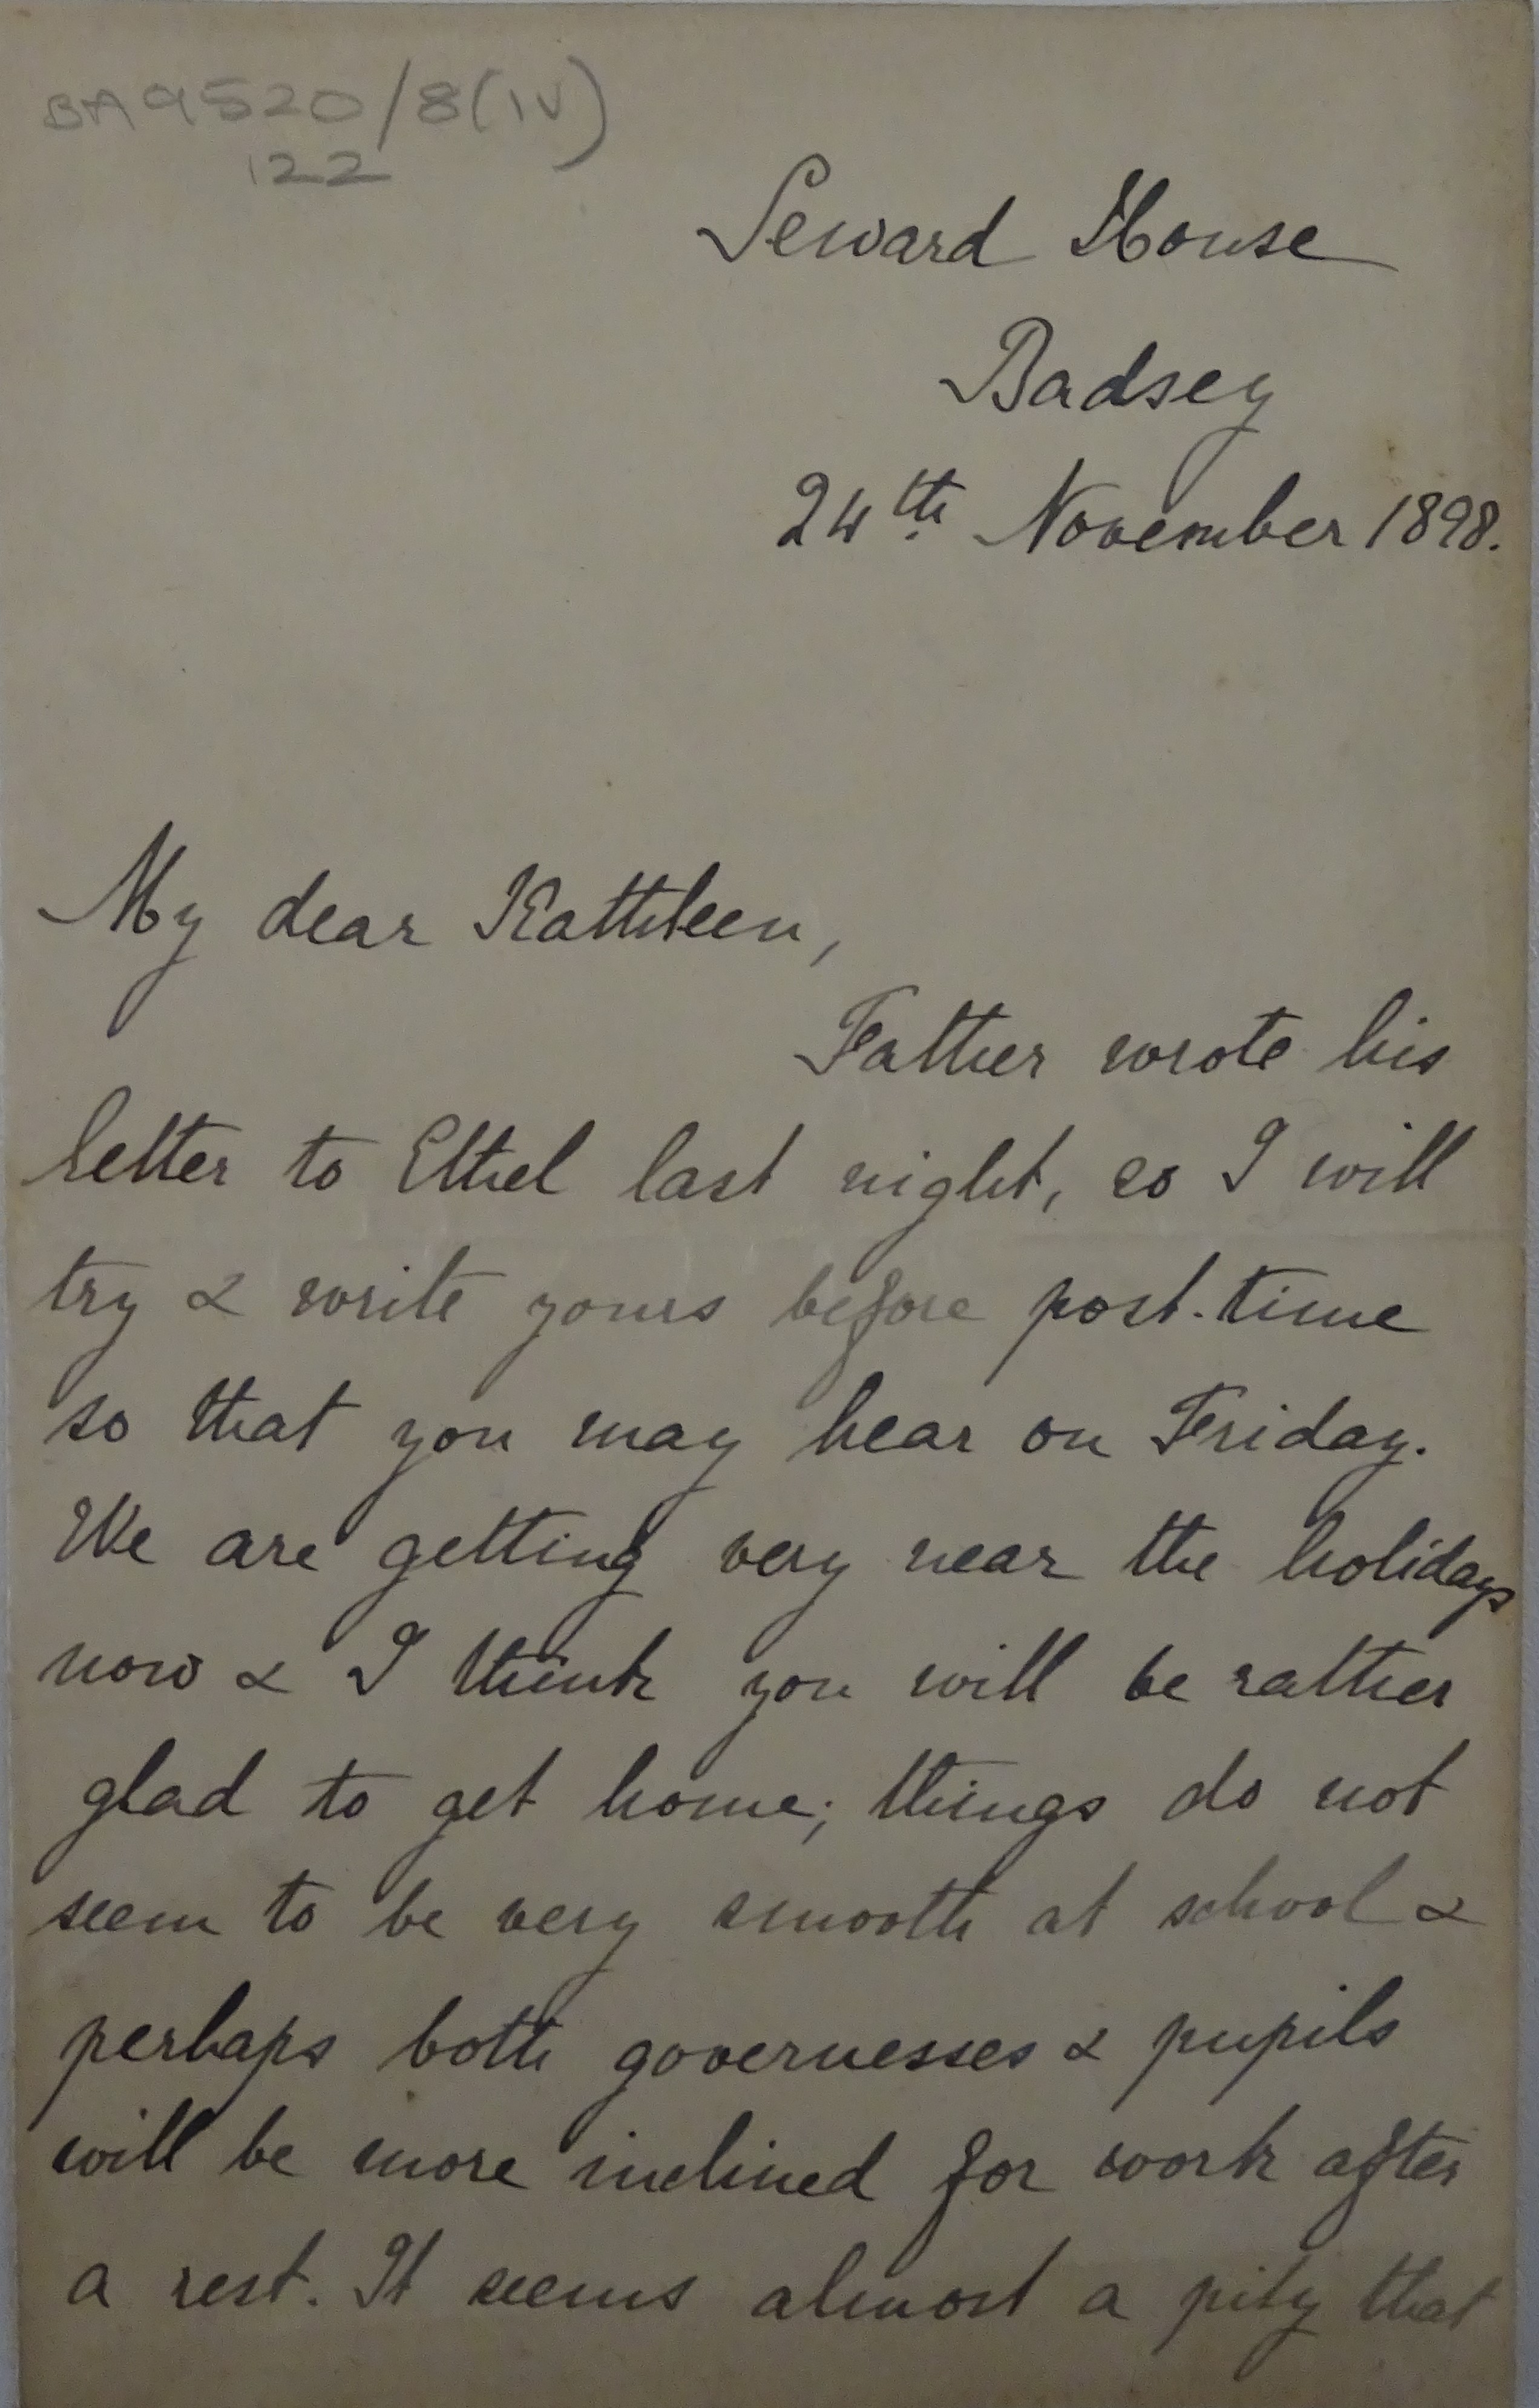 BA9520/8(IV)
122
Seward House
Badsey
24th November 1898.
My dear Kathleen,
Father wrote his
letter to Ethel last night, so I will
try & write yours before post-time
so that you may hear on Friday.
We are getting very near the holidays
now & I think you will be rather
glad to get home; things do not
seem to be very smooth at school &
perhaps both governesses & pupils
will be more inclined for work after
a rest. It seems almost a pity that